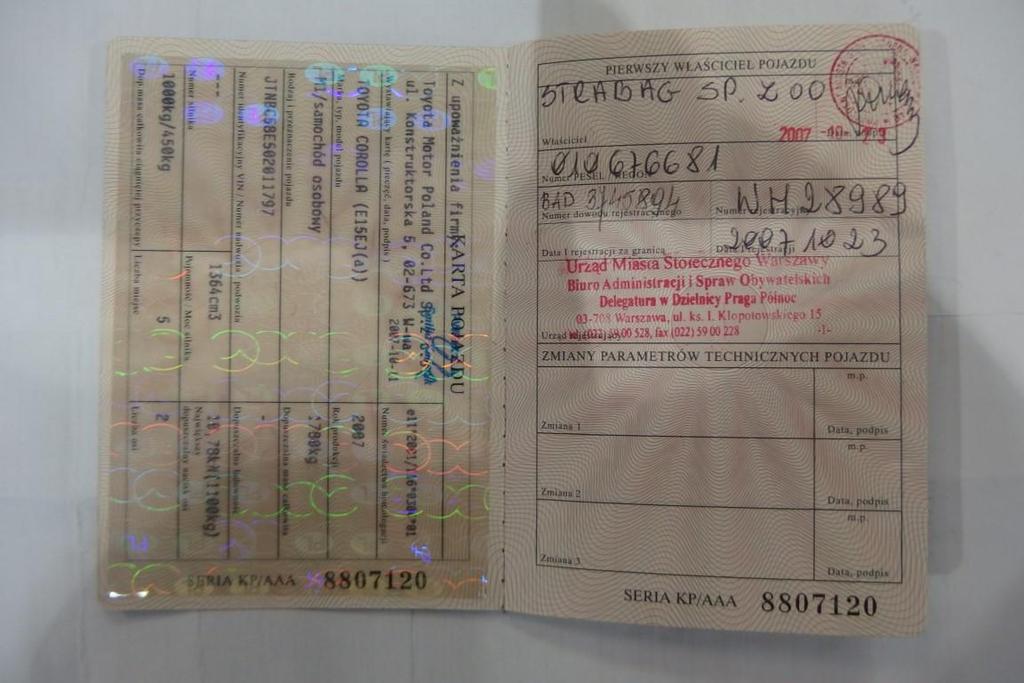 KARTA POJAZDU
Z upoważnienia firmy
Toyota Motor Poland Co.Ltd Sp.z o.o.
ul. Konstruktorska 5, 02-673 W-wa
2007-10-11
Wystawiający kartę (pieczęć, data, podpis)
Numer świadectwa homologacji
TOYOTA COROLLA (E15EJ(a))
2007
Marka, typ, model pojazdu
Rok produkcji
M1/samochód osobowy
1780kg
Rodzaj i przeznaczenie pojazdu
Dopuszczalna masa całkowita
-
Numer identyfikacyjny VIN / Numer nadwozia, podwozia
Dopuszczalna ładowność
--- 1364cm3
Numer silnika
Pojemność / Moc silnika
Największy
dopuszczalny nacisk osi
1000kg/450kg 5 2
Dop. masa całkowita ciągniętej przyczepy
Liczba miejsc
Liczba osi
SERIA KP/AAA 8807120
PIERWSZY WŁAŚCICIEL POJAZDU
STRABAG SP. Z OO
Właściciel
010676681
Numer PESEL / REGON
BAD 3745894 WH28989
Numer dowodu rejestracyjnego Numer rejestracyjny
2007 10 23
Data I rejestracji za granicą Data I rejestracji
Urząd Miasta Stołecznego Warszawy
Biuro Administracji i Spraw Obywatelskich
Delegatura w Dzielnicy Praga Północ
03-708 Warszawa, ul. ks. I. Kłopotowskiego 15
tel. (022) 59 00 528, fax (022) 59 00 228
-1-
Urząd rejestrujący
ZMIANY PARAMETRÓW TECHNICZNYCH POJAZDU
m.p.
Zmiana 1 Data, podpis
m.p.
Zmiana 2 Data, podpis
m.p.
Zmiana 3 Data, podpis
SERIA KP/AAA 8807120